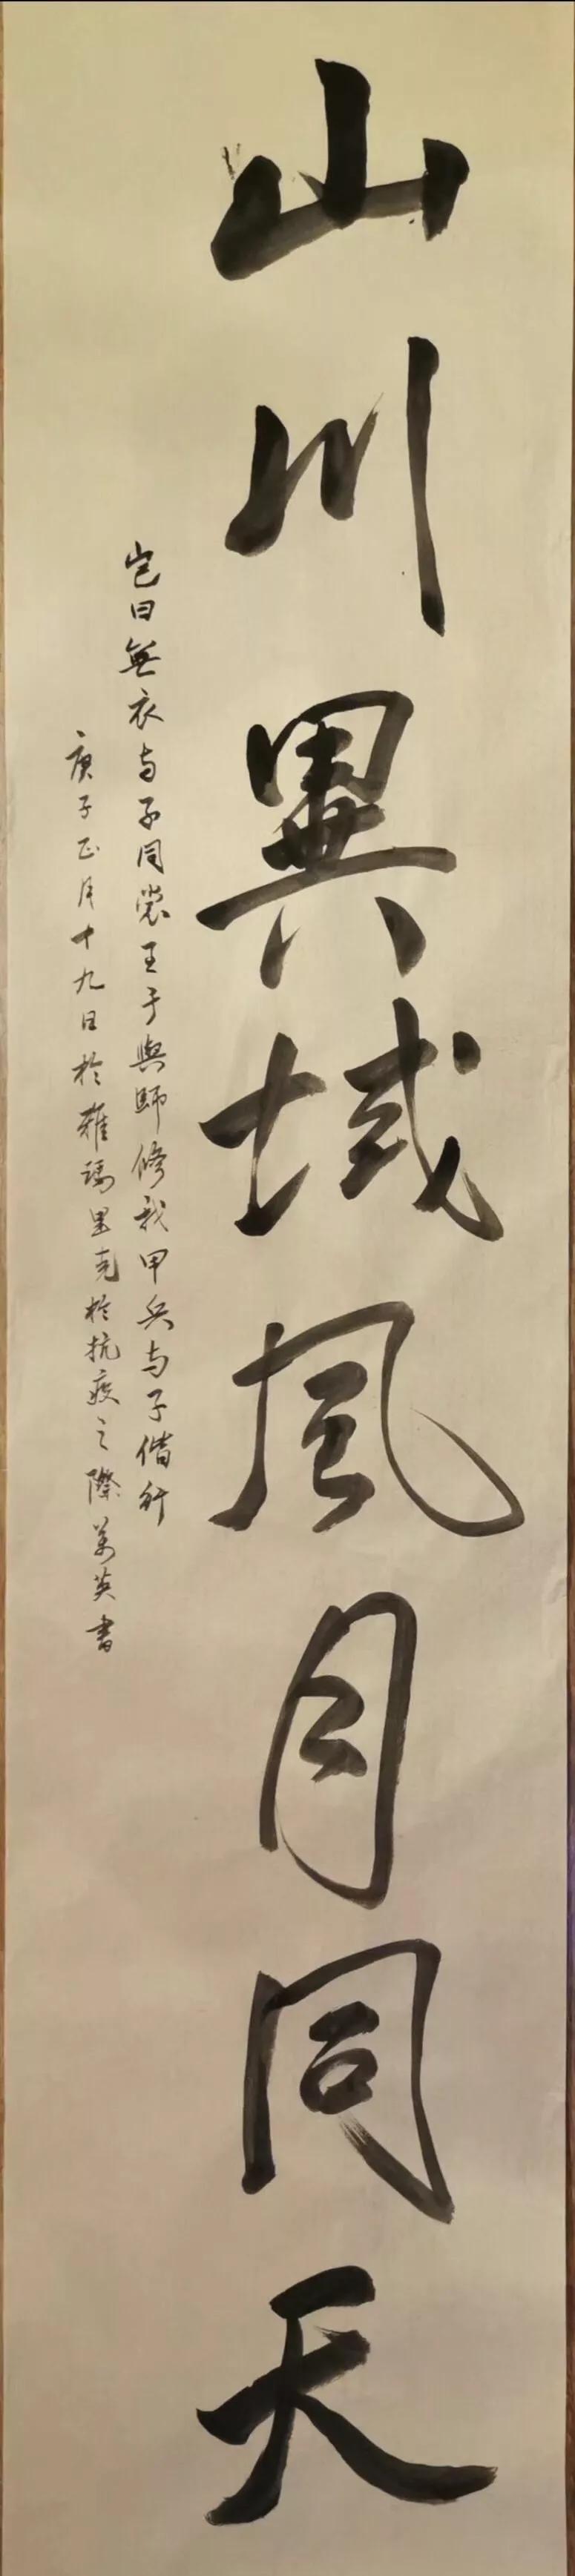 山川異域風月同天
豈曰無衣与子同裳王于興師修我甲兵与子偕行
庚子正月十九日於雅瑪里克於抗疫之際英書